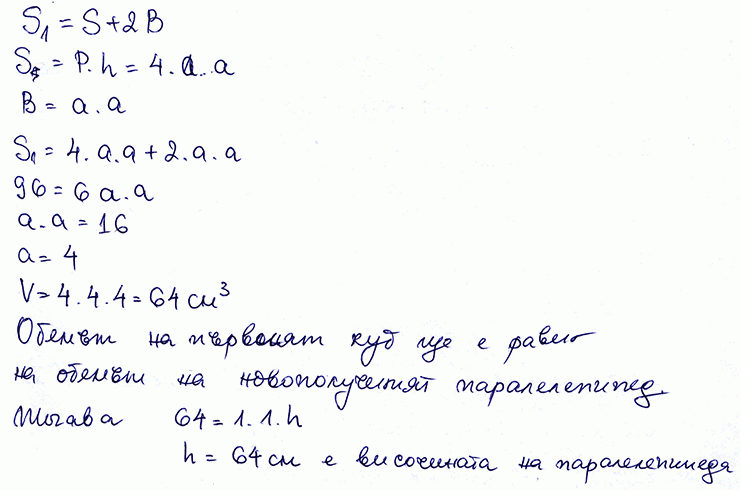 S₁ = S + 2B
S = P.h = 4.a.a
B = a.a
S₁ = 4.a.a + 2.a.a
96 = 6 a.a
a.a = 16
a = 4
V = 4.4.4 = 64 см³
Обемът на първоният куб ще е равен
на обемът на новополученият паралелепипед.
Тогава 64 = 1.1.h
h = 64 см е височината на паралелепипеда